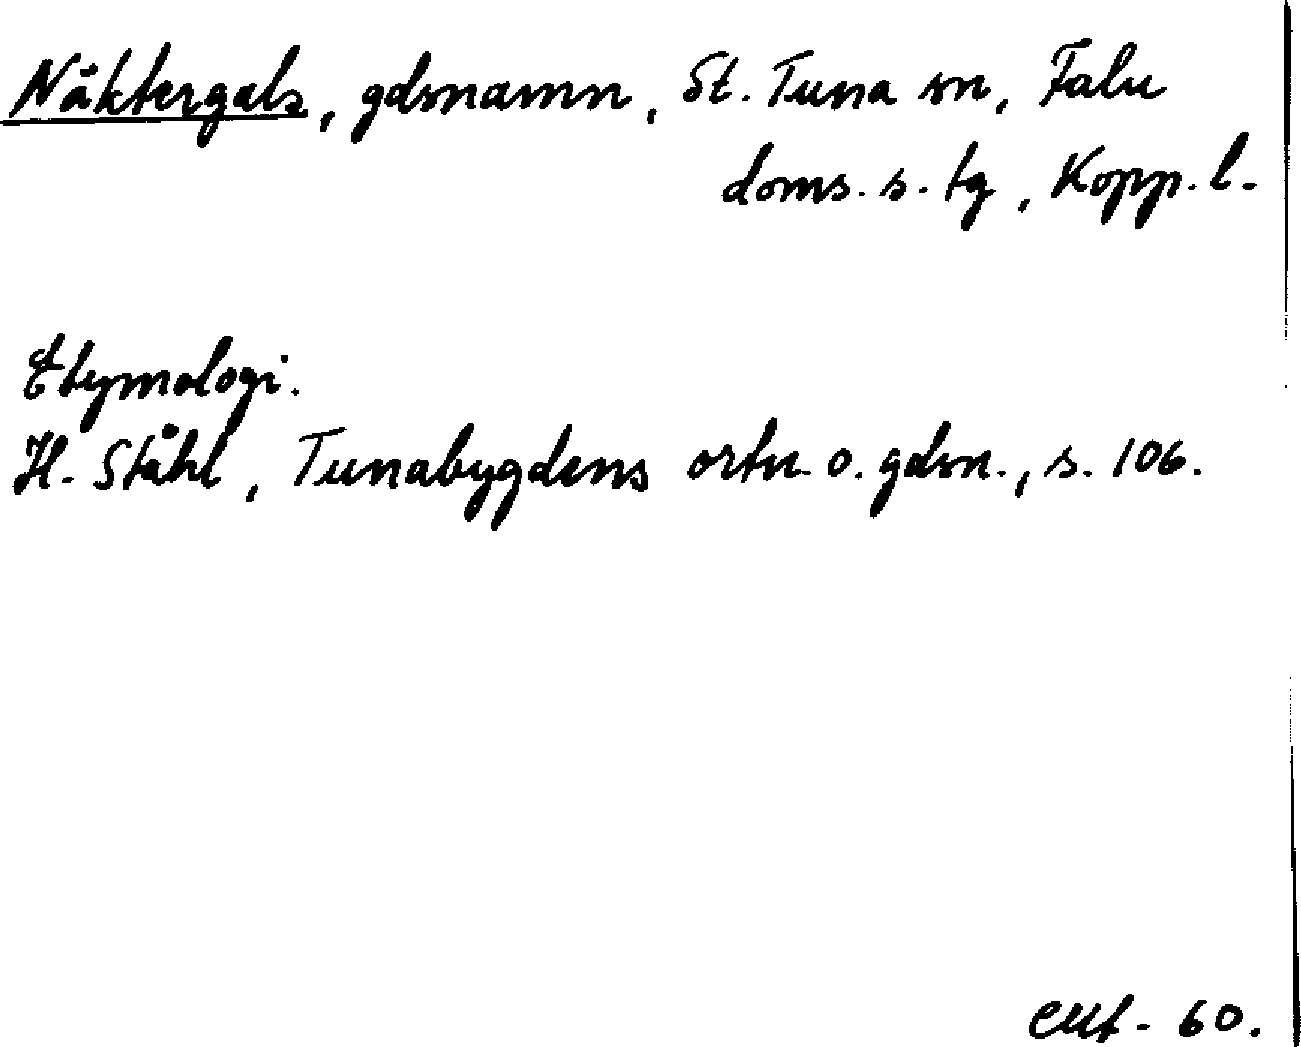 Näktergals, gdsnamn, St. Tuna sn, Falu
doms. s. tg, Kopp. l.
Etymologi.
H. Ståhl, Tunabygdens ortn. o. gdsn., s. 106.
60.